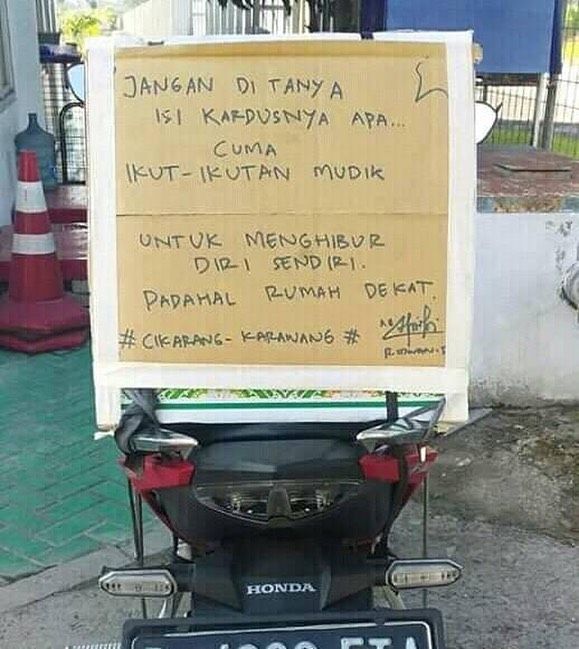 JANGAN DI TANYA
ISI KARDUSNYA APA...
CUMA
IKUT-IKUTAN MUDIK
UNTUK MENGHIBUR
DIRI SENDIRI.
PADAHAL RUMAH DEKAT.
# CIKARANG - KARAWANG #
HONDA